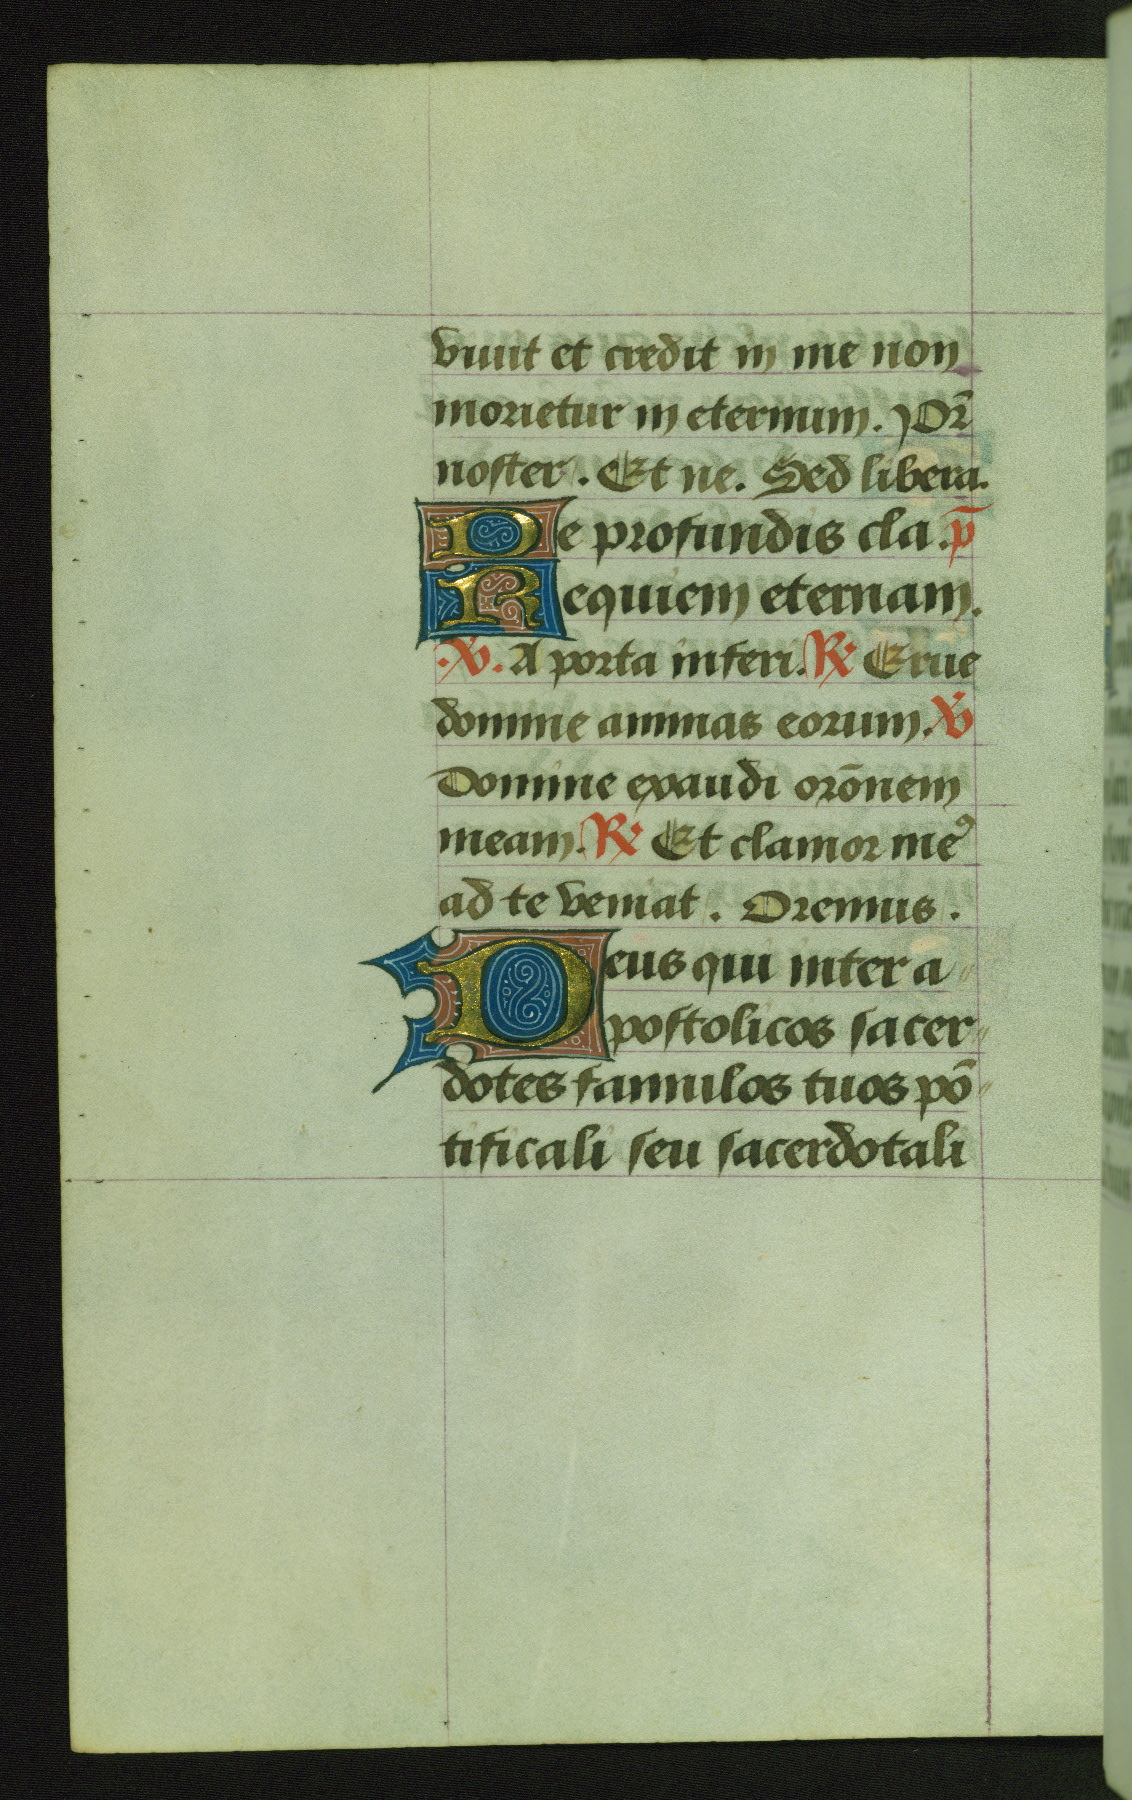 viuit et credit in me non
morietur in eternum. Pr̄
noster. Et ne. Sed libera.
De profundis cla. p̄
Requiem eternam.
.℣. A porta inferi. ℟ Erue
domine animas eorum. ℣
Domine exaudi orōnem
meam. ℟ Et clamor meꝰ
ad te veniat. Oremus.
Deus qui inter a
postolicos sacer
dotes famulos tuos pō
tificali seu sacerdotali